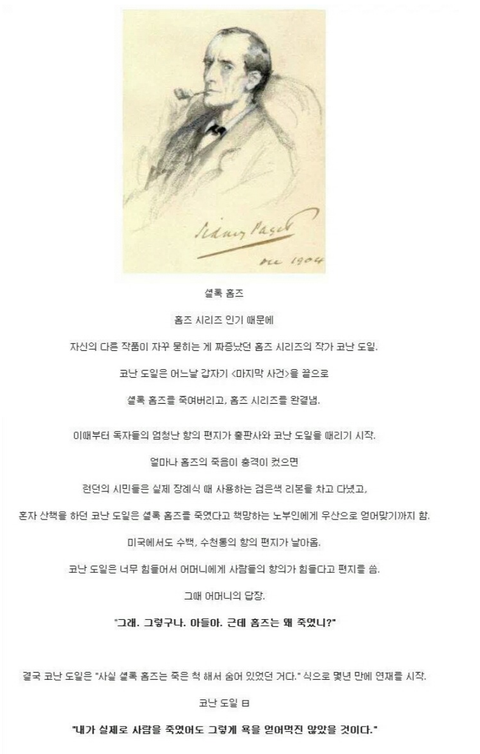 Sidney Paget
Dec 1904
셜록 홈즈
홈즈 시리즈 인기 때문에
자신의 다른 작품이 자꾸 묻히는 게 짜증났던 홈즈 시리즈의 작가 코난 도일.
코난 도일은 어느날 갑자기 <마지막 사건>을 끝으로
셜록 홈즈를 죽여버리고, 홈즈 시리즈를 완결냄.
이때부터 독자들의 엄청난 항의 편지가 출판사와 코난 도일을 때리기 시작.
얼마나 홈즈의 죽음이 충격이 컸으면
런던의 시민들은 실제 장례식 때 사용하는 검은색 리본을 차고 다녔고,
혼자 산책을 하던 코난 도일은 셜록 홈즈를 죽였다고 책망하는 노부인에게 우산으로 얻어맞기까지 함.
미국에서도 수백, 수천통의 항의 편지가 날아옴.
코난 도일은 너무 힘들어서 어머니에게 사람들의 항의가 힘들다고 편지를 씀.
그때 어머니의 답장.
"그래. 그렇구나. 아들아. 근데 홈즈는 왜 죽였니?"
결국 코난 도일은 "사실 셜록 홈즈는 죽은 척 해서 숨어 있었던 거다." 식으로 몇년 만에 연재를 시작.
코난 도일 曰
"내가 실제로 사람을 죽였어도 그렇게 욕을 얻어먹진 않았을 것이다."